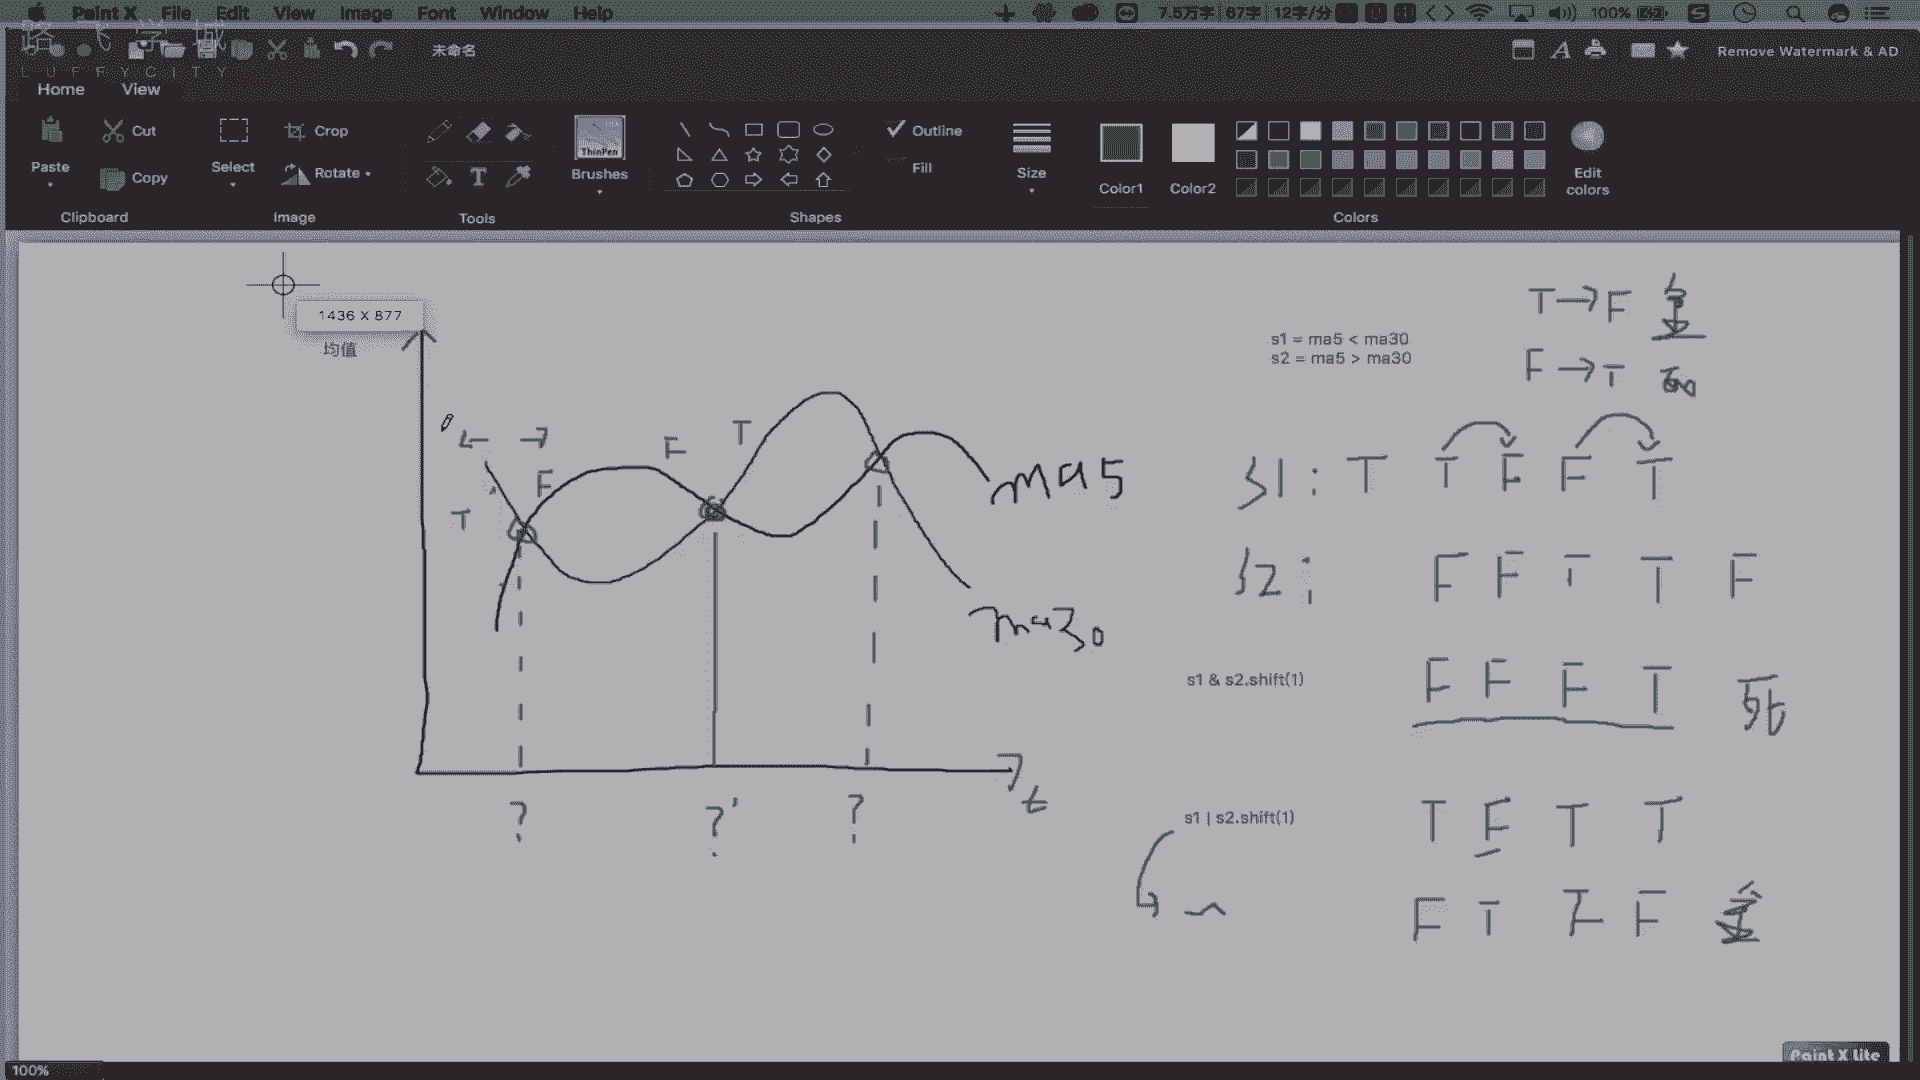 Paint X File Edit View Image Font Window Help 7.5万字 67字 12字/分 100%
路飞学城
LUFFYCITY
未命名
Remove Watermark & AD
Home View
Paste
Cut
Copy
Clipboard
Select
Crop
Rotate
Image
Tools
ThinPen
Brushes
Shapes
Outline
Fill
Size
Color1
Color2
Edit colors
Colors
1436 X 877
均值
T F F T
ma5
ma30
t
? ? ?
s1 = ma5 < ma30
s2 = ma5 > ma30
T→F 金
F→T
S1: T T F F T
S2: F F T T F
s1 & s2.shift(1) F F F T 死
s1 | s2.shift(1) T F T T
~ F T F F 金
100%
Paint X Lite